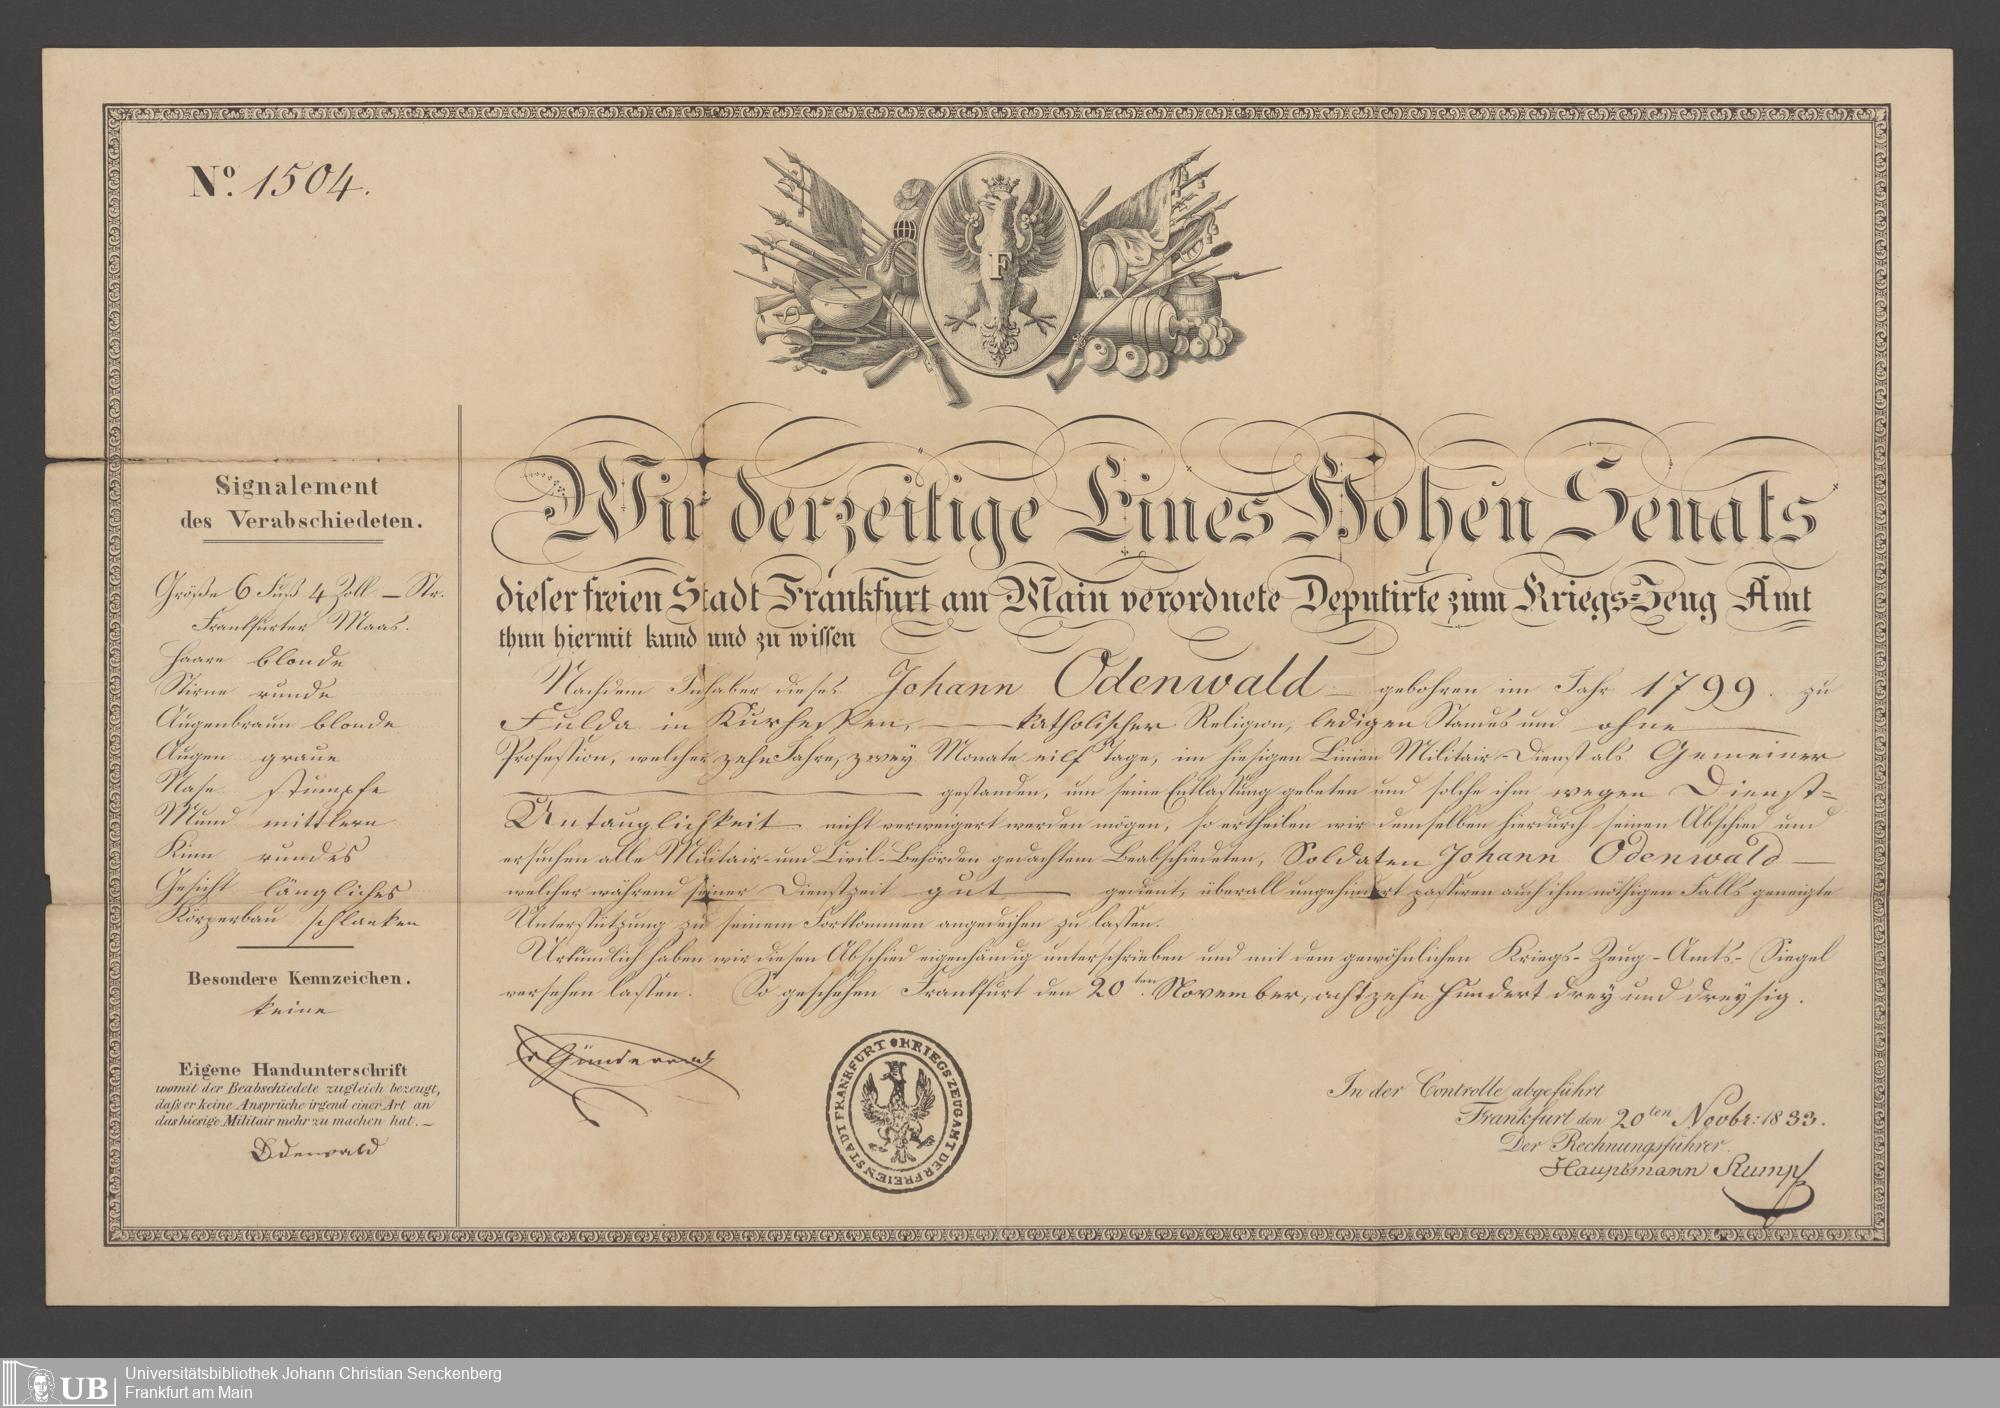 No. 1504.
F
Signalement
des Verabschiedeten.
Größe 6 Fuß 4 Zoll — Str.
Frankfurter Maas.
Haare blonde
Stirne runde
Augenbraun blonde
Augen graue
Nase stumpfe
Mund mittlern
Kinn rundes
Gesicht längliches
Körperbau schlanken
Besondere Kennzeichen.
keine
Eigene Handunterschrift
womit der Beabschiedete zugleich bezeugt,
daſs er keine Ansprüche irgend einer Art an
das hiesige Militair mehr zu machen hat. —
Odenwald
Wir derzeitige Eines Hohen Senats
dieser freien Stadt Frankfurt am Main verordnete Deputirte zum Kriegs-Zeug Amt
thun hiermit kund und zu wissen
Nachdem Inhaber dieses Johann Odenwald — gebohren im Jahr 1799. zu
Fulda in Kurhessen, — katholischer Religion, ledigen Standes und ohne —
Profession, welcher zehn Jahre, zwey Monate eilf Tage, im hiesigen Linien Militair-Dienst als Gemeiner
— gestanden, um seine Entlassung gebeten und solche ihm wegen Dienst-
Untauglichkeit nicht verweigert werden mögen, so ertheilen wir demselben hierdurch seinen Abschied und
ersuchen alle Militair- und Civil-Behörden gedachtem Beabschiedeten, Soldaten Johann Odenwald —
welcher während seiner Dienstzeit gut — gedient, überall ungehindert passiren auch ihm nöthigen Falls geneigte
Unterstützung zu seinem Fortkommen angedeihen zu lassen.
Urkundlich haben wir diesen Abschied eigenhändig unterschrieben und mit dem gewöhnlichen Kriegs-Zeug-Amts-Siegel
versehen lassen. So geschehen Frankfurt den 20ten November, achtzehn hundert drey und dreysig.
v Günderrode
KRIEGSZEUGAMT DER FREIEN STADT FRANKFURT
In der Controlle abgeführt
Frankfurt den 20ten Novbr: 1833.
Der Rechnungsführer.
Hauptmann Rumpf
UB
Universitätsbibliothek Johann Christian Senckenberg
Frankfurt am Main